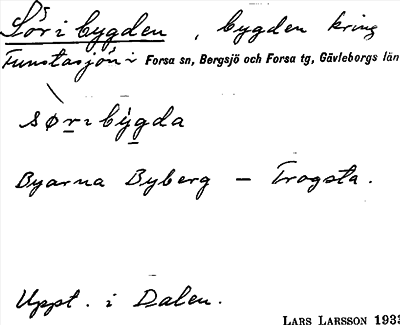 Sör i bygden, bygden kring
Funstasjön i Forsa sn, Bergsjö och Forsa tg, Gävleborgs län
sør i bỳgda
Byarna Byberg – Trogsta.
Uppt. i Dalen.
LARS LARSSON 1933